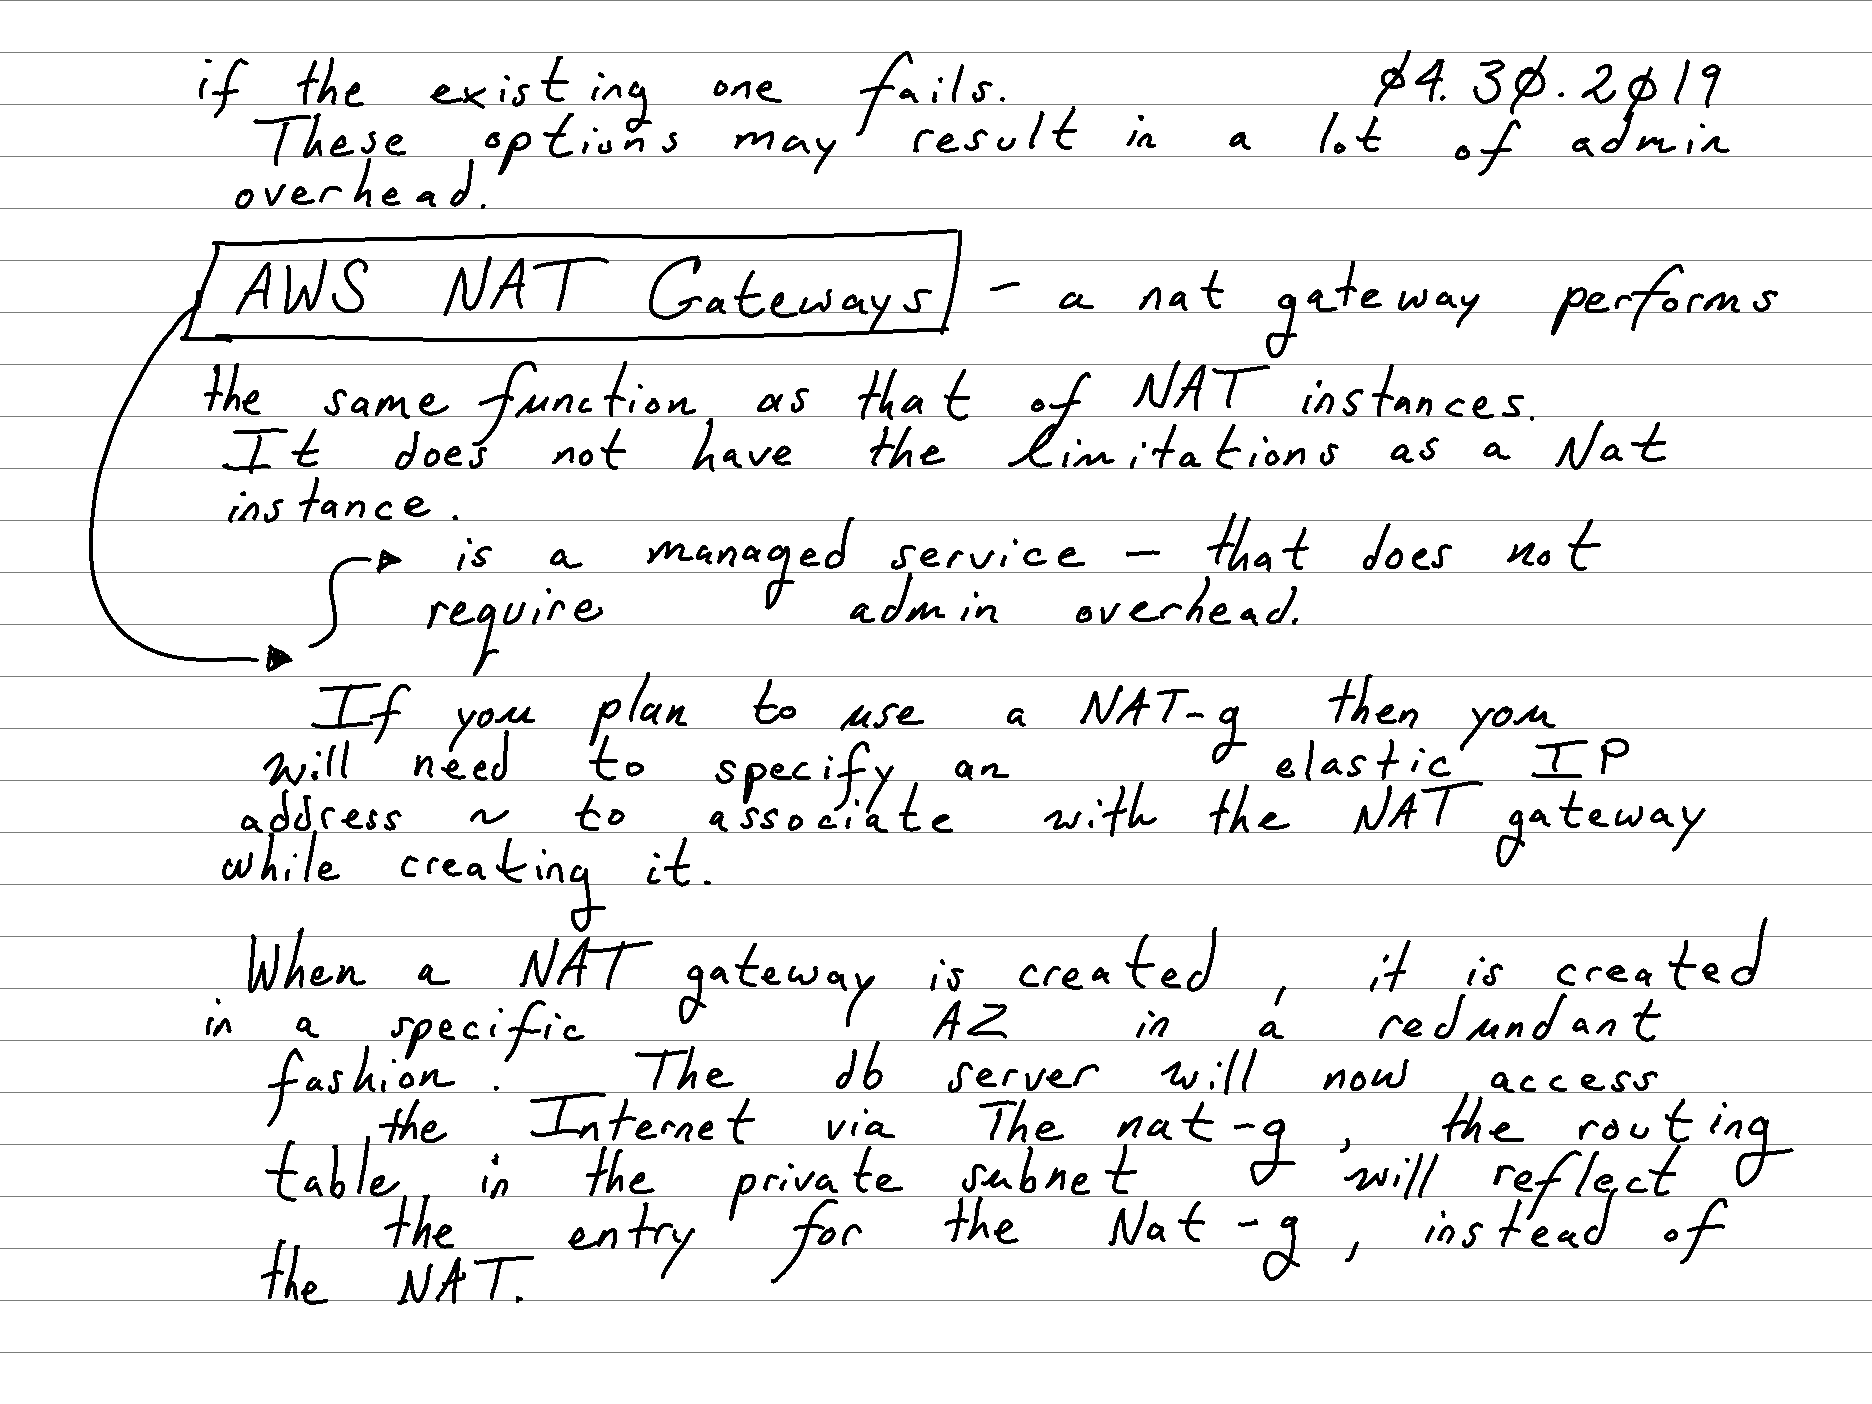 if the existing one fails. 04.30.2019
These options may result in a lot of admin
overhead.
AWS NAT Gateways - a nat gateway performs
the same function as that of NAT instances.
It does not have the limitations as a Nat
instance.
is a managed service - that does not
require admin overhead.
If you plan to use a NAT-g then you
will need to specify an elastic IP
address ~ to associate with the NAT gateway
while creating it.
When a NAT gateway is created, it is created
in a specific AZ in a redundant
fashion. The db server will now access
the Internet via The nat-g, the routing
table in the private subnet will reflect
the entry for the Nat-g, instead of
the NAT.